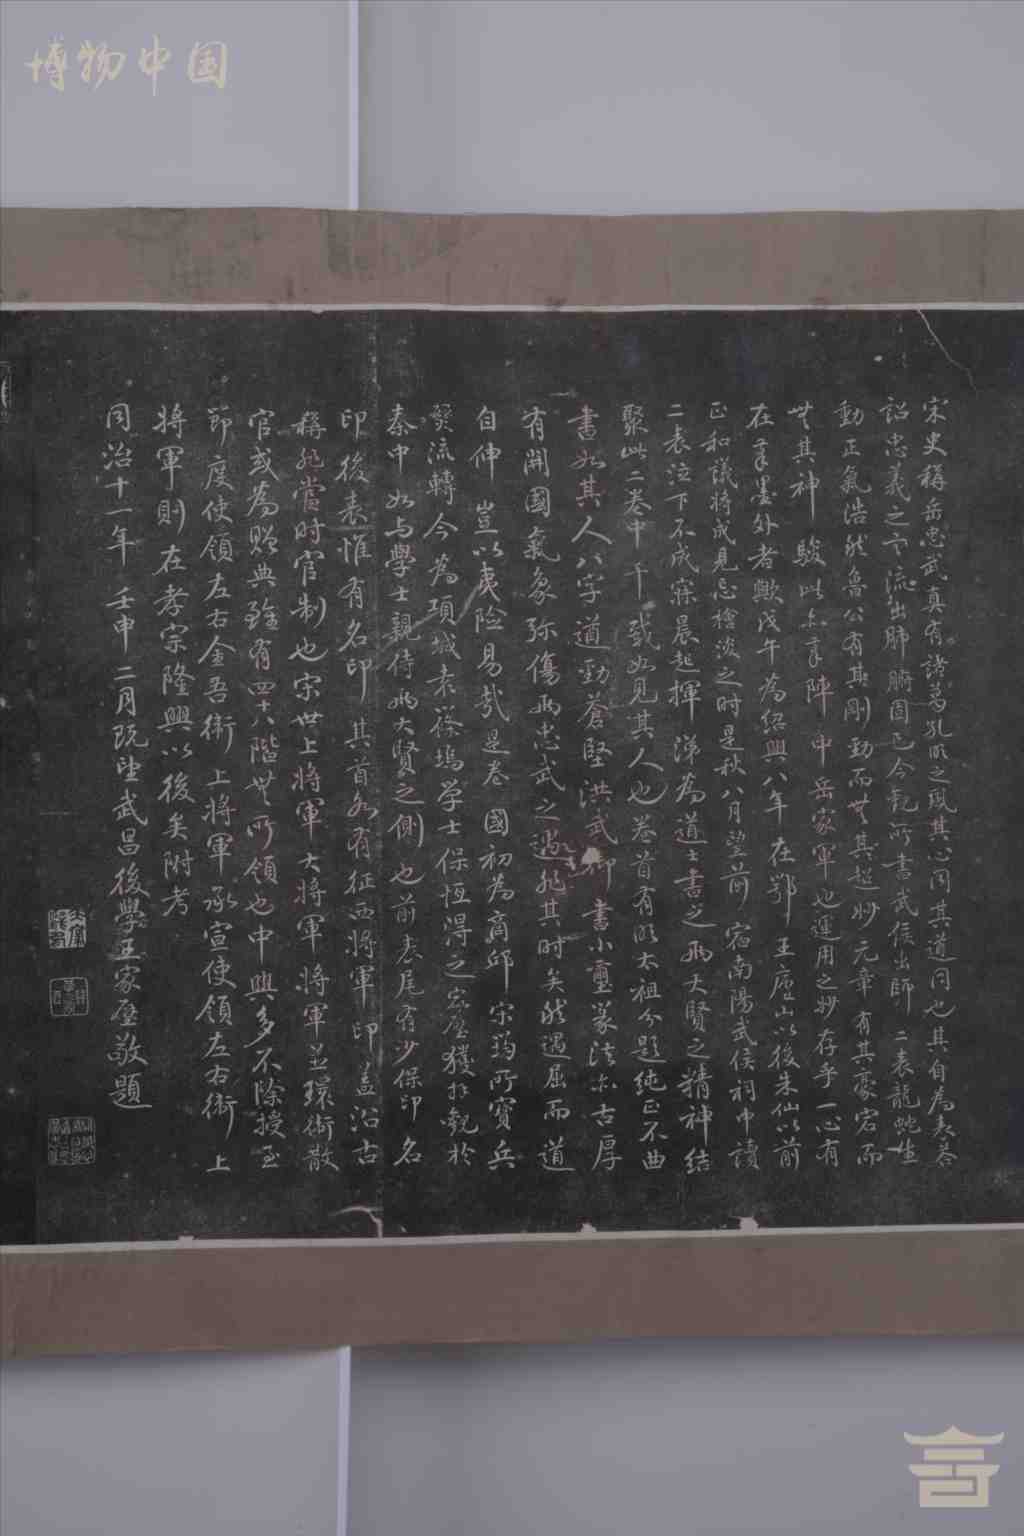 博物中国
宋史稱岳忠武真有諸葛孔明之風其心同其道同也其自為表答
詔忠義之言流出肺腑固已今觀所書武侯出師二表龍蛇生
動正氣浩然魯公有其剛勁而無其超妙元章有其豪宕而
無其神駿此亦筆陣中岳家軍也運用之妙存乎一心有
在筆墨外者歟戊午為紹興八年在鄂王廬山以後朱仙以前
正和議將成見忌檜浚之時是秋八月望前宿南陽武侯祠中讀
二表泣下不成寐晨起揮涕為道士書之兩大賢之精神結
聚此二卷中千載如見其人也卷首有明太祖分題純正不曲
書如其人八字遒勁蒼堅洪武御書小璽篆法亦古厚
有開國氣象弥傷兩忠武之遇非其時矣然遇屈而道
自伸豈以夷險易哉是卷國初為商邱宋筠所寶兵
燹流轉今為項城袁筱塢学士保恆得之家廬獲拜觀於
秦中如与學士親侍兩大賢之側也前表尾有少保印名
印後表惟有名印其首各有征西將軍印蓋沿古
稱非當時官制也宋世上將軍大將軍將軍並環衛散
官或為贈典雖有四十八階無所領也中興多不除授至
節度使領左右金吾衛上將軍承宣使領左右衛上
將軍則在孝宗隆興以後矣附考
同治十一年壬申二月既望武昌後學王家璧敬題